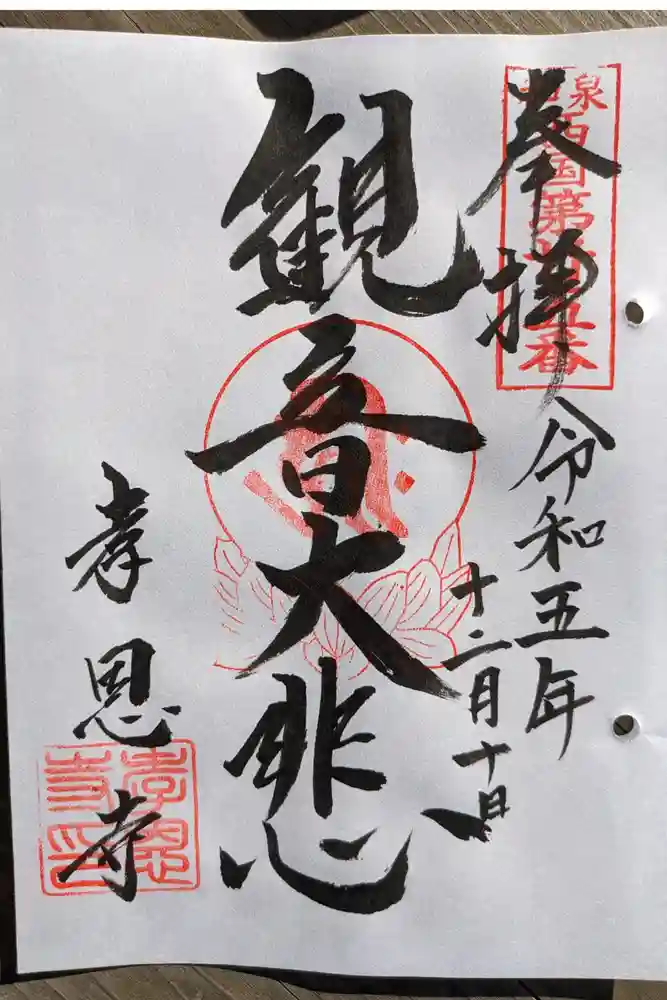 奉拝
和泉
西国第 五番
令和五年
十二月十日
観音大悲
孝恩寺
孝恩
寺印